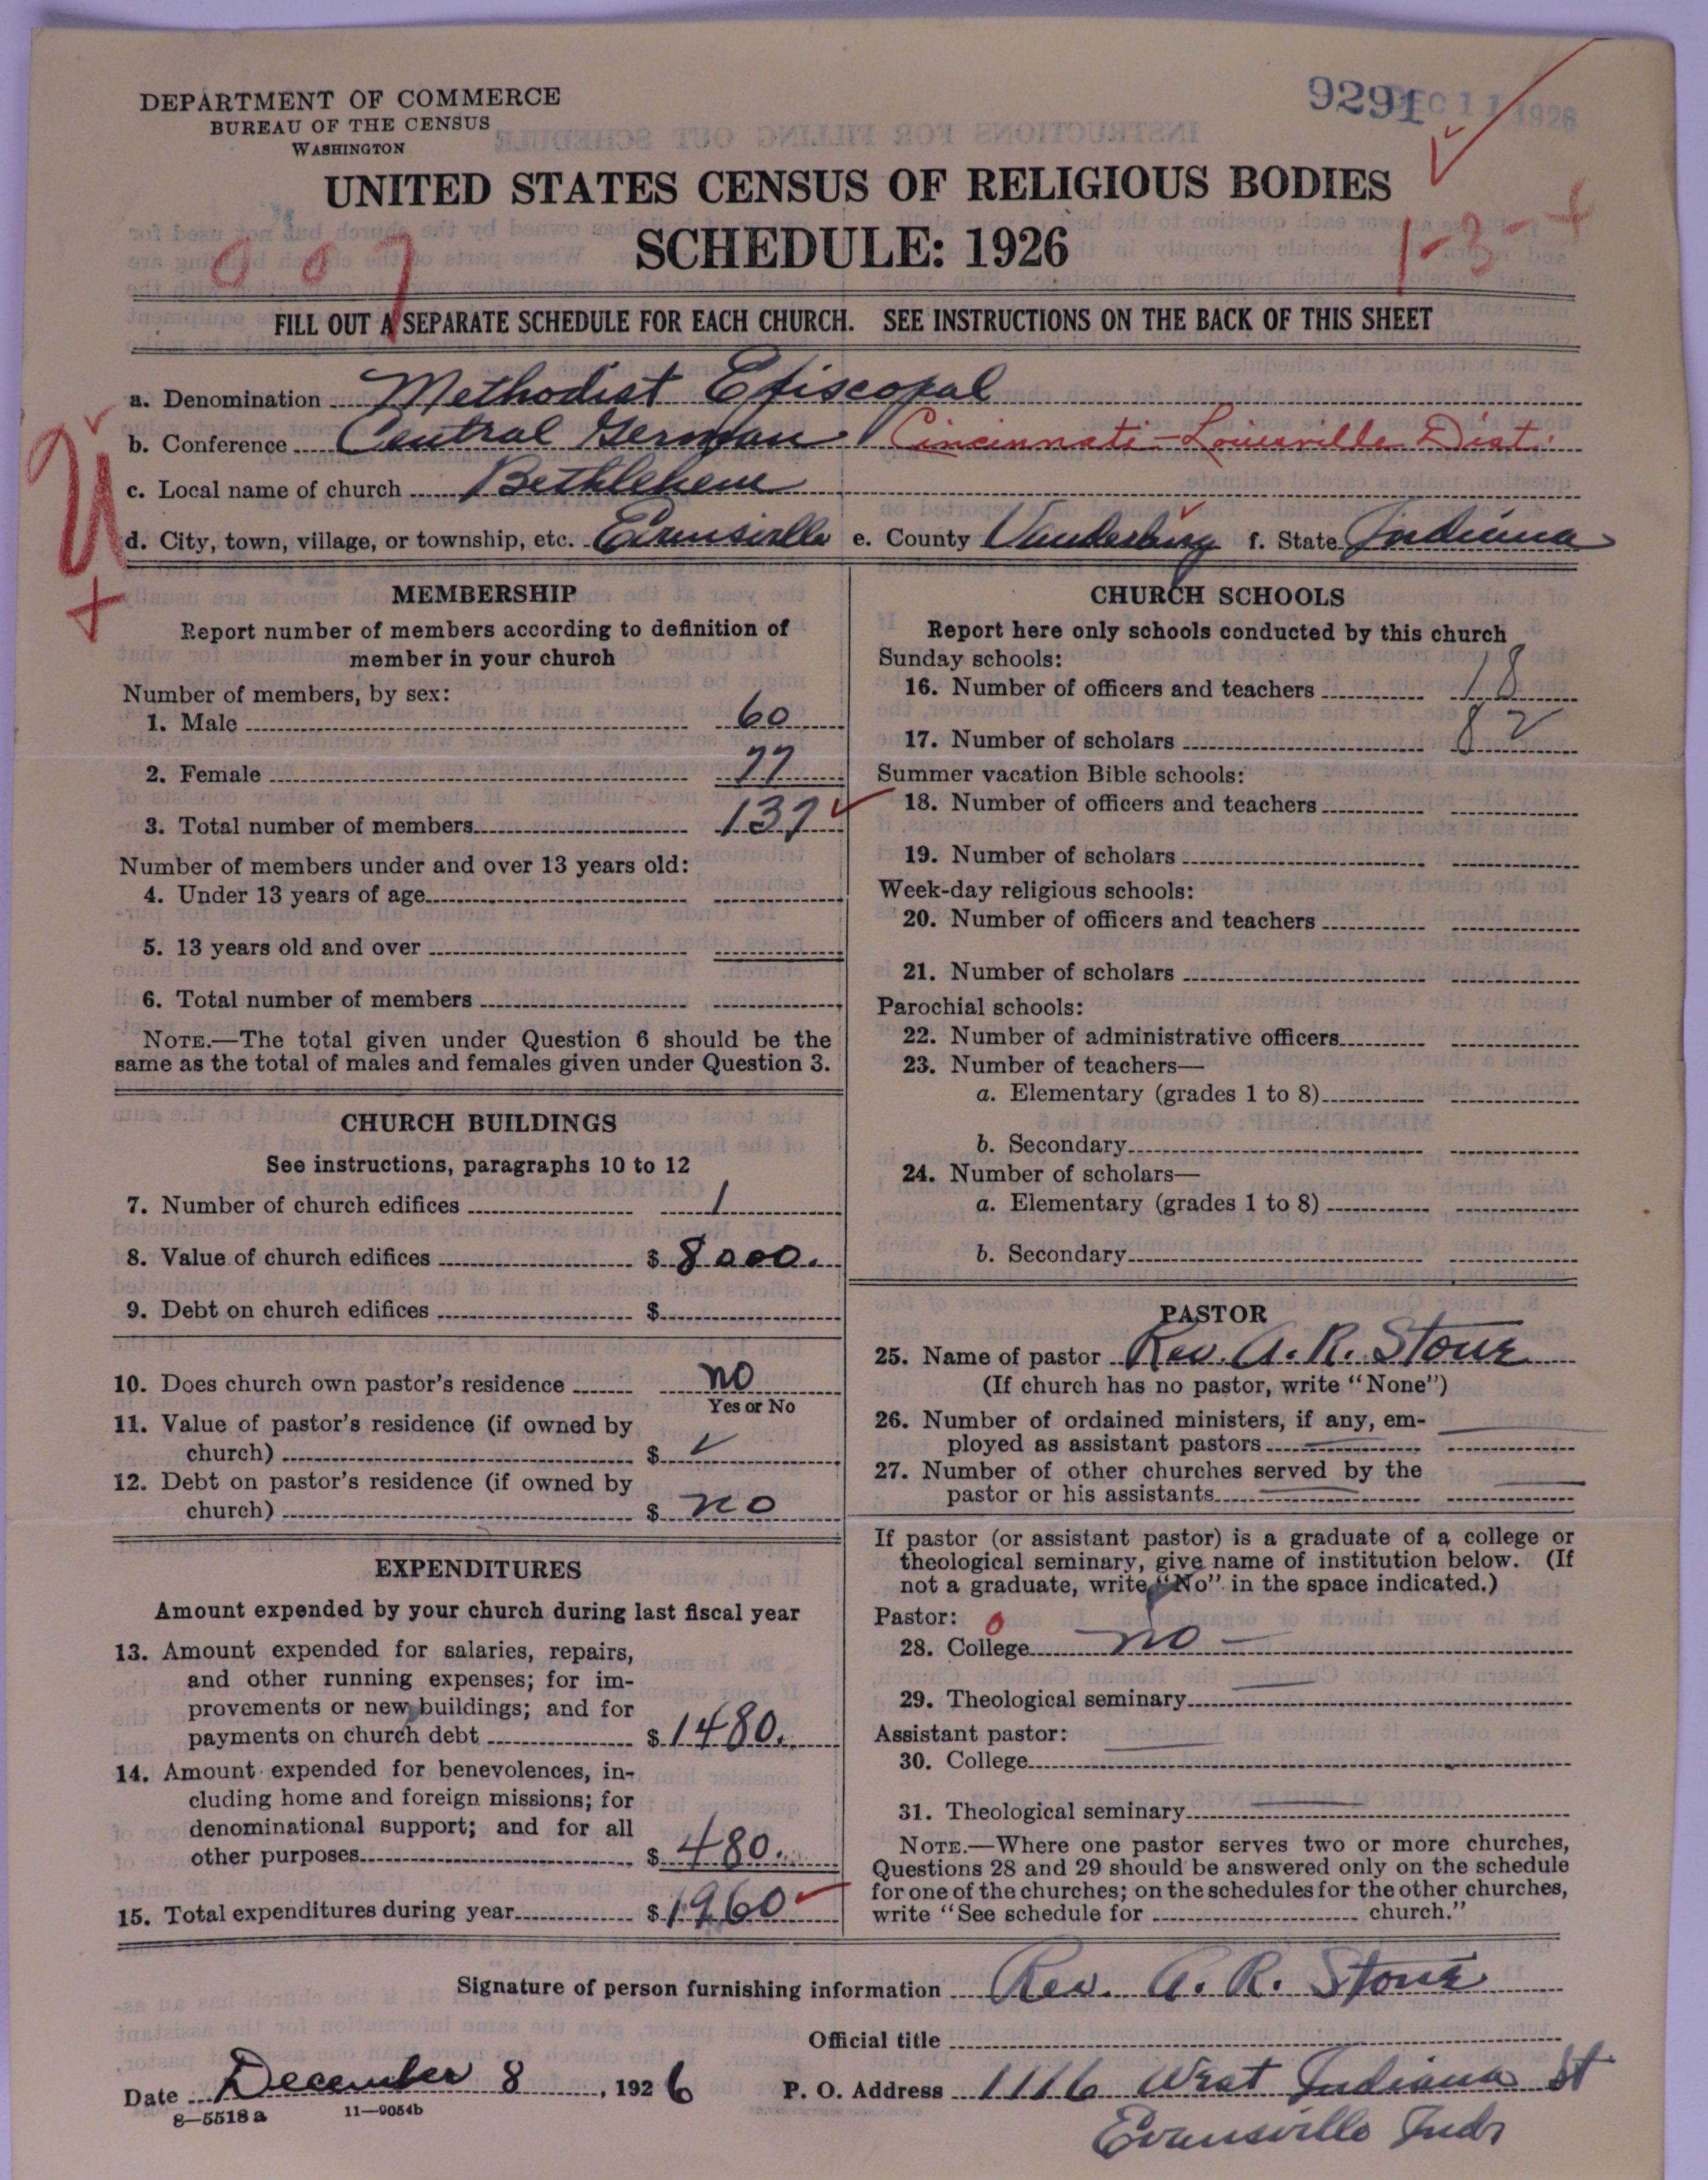 DEPARTMENT OF COMMERCE
BUREAU OF THE CENSUS
WASHINGTON
9291
DEC 11 1926
UNITED STATES CENSUS OF RELIGIOUS BODIES
SCHEDULE: 1926
007
1-3-+
FILL OUT A SEPARATE SCHEDULE FOR EACH CHURCH. SEE INSTRUCTIONS ON THE BACK OF THIS SHEET
a. Denomination Methodist Episcopal
b. Conference Central German Cincinnati-Louisville Dist.
c. Local name of church Bethlehem
d. City, town, village, or township, etc. Evansville e. County Vanderburg f. State Indiana
MEMBERSHIP
Report number of members according to definition of
member in your church
Number of members, by sex:
1. Male 60
2. Female 77
3. Total number of members 137
Number of members under and over 13 years old:
4. Under 13 years of age
5. 13 years old and over
6. Total number of members
NOTE.—The total given under Question 6 should be the
same as the total of males and females given under Question 3.
CHURCH BUILDINGS
See instructions, paragraphs 10 to 12
7. Number of church edifices 1
8. Value of church edifices $ 8000.
9. Debt on church edifices $
10. Does church own pastor's residence no
Yes or No
11. Value of pastor's residence (if owned by
church) $
12. Debt on pastor's residence (if owned by
church) $ no
EXPENDITURES
Amount expended by your church during last fiscal year
13. Amount expended for salaries, repairs,
and other running expenses; for im-
provements or new buildings; and for
payments on church debt $ 1480.
14. Amount expended for benevolences, in-
cluding home and foreign missions; for
denominational support; and for all
other purposes $ 480.
15. Total expenditures during year $ 1960
CHURCH SCHOOLS
Report here only schools conducted by this church
Sunday schools:
16. Number of officers and teachers 18
17. Number of scholars 82
Summer vacation Bible schools:
18. Number of officers and teachers
19. Number of scholars
Week-day religious schools:
20. Number of officers and teachers
21. Number of scholars
Parochial schools:
22. Number of administrative officers
23. Number of teachers—
a. Elementary (grades 1 to 8)
b. Secondary
24. Number of scholars—
a. Elementary (grades 1 to 8)
b. Secondary
PASTOR
25. Name of pastor Rev. A. R. Stour
(If church has no pastor, write "None")
26. Number of ordained ministers, if any, em-
ployed as assistant pastors
27. Number of other churches served by the
pastor or his assistants
If pastor (or assistant pastor) is a graduate of a college or
theological seminary, give name of institution below. (If
not a graduate, write "No" in the space indicated.)
Pastor: 0
28. College no
29. Theological seminary
Assistant pastor:
30. College
31. Theological seminary
NOTE.—Where one pastor serves two or more churches,
Questions 28 and 29 should be answered only on the schedule
for one of the churches; on the schedules for the other churches,
write "See schedule for church."
Signature of person furnishing information Rev. A. R. Stour
Official title
Date December 8, 1926 P. O. Address 1116 West Indiana St
8—5518 a 11—9054b
Evansville Ind